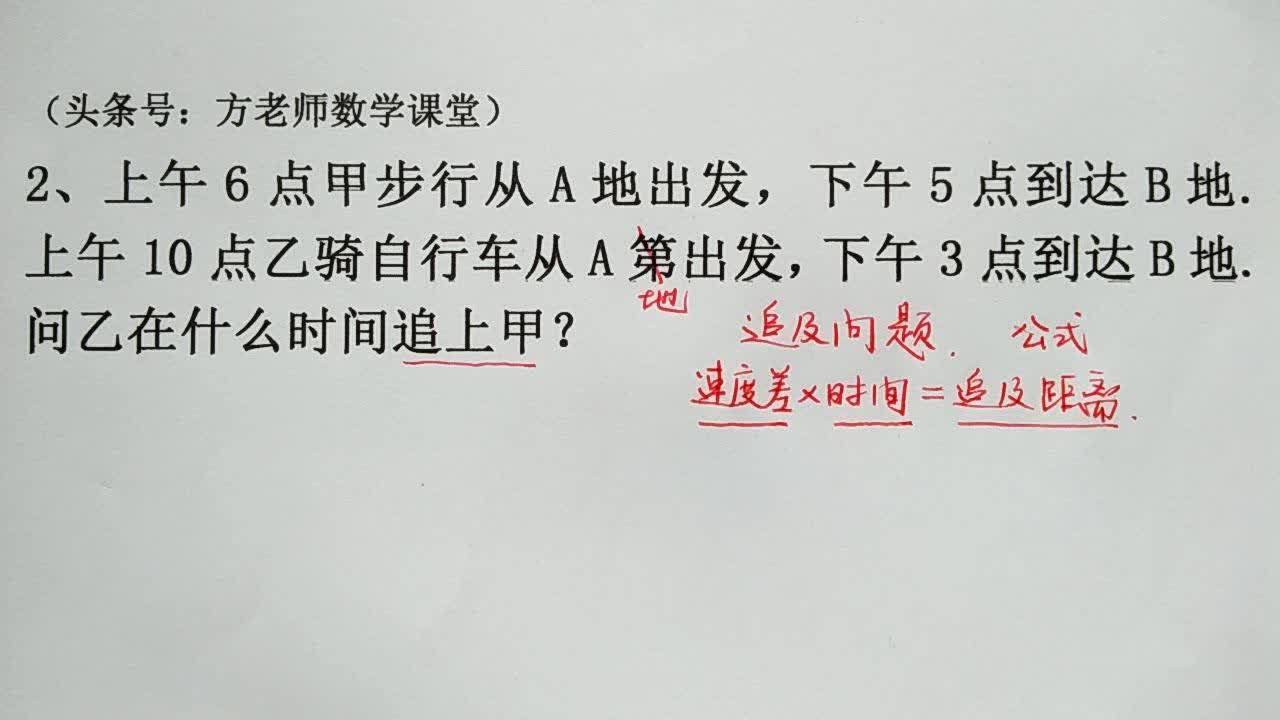 （头条号：方老师数学课堂）
2、上午 6 点甲步行从 A 地出发，下午 5 点到达 B 地.
上午 10 点乙骑自行车从 A 第出发，下午 3 点到达 B 地.
地
问乙在什么时间追上甲？
追及问题. 公式
速度差×时间=追及距离.